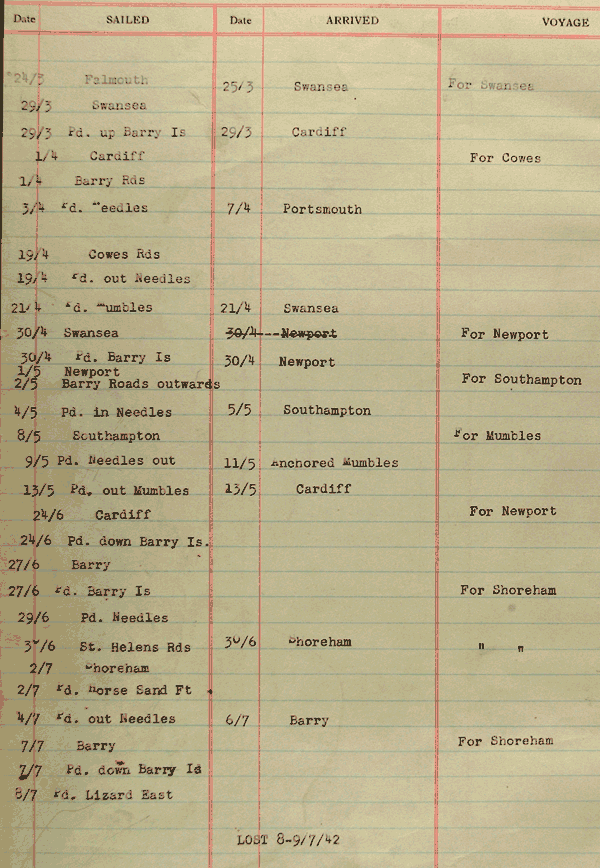 Date SAILED Date ARRIVED VOYAGE
24/3 Falmouth 25/3 Swansea For Swansea
29/3 Swansea
29/3 Pd. up Barry Is 29/3 Cardiff
1/4 Cardiff For Cowes
1/4 Barry Rds
3/4 Pd. Needles 7/4 Portsmouth
19/4 Cowes Rds
19/4 Pd. out Needles
21/4 Pd. Mumbles 21/4 Swansea
30/4 Swansea 30/4---Newport For Newport
30/4 Pd. Barry Is 30/4 Newport
1/5 Newport
2/5 Barry Roads outwards For Southampton
4/5 Pd. in Needles 5/5 Southampton
8/5 Southampton For Mumbles
9/5 Pd. Needles out 11/5 Anchored Mumbles
13/5 Pd. out Mumbles 13/5 Cardiff
24/6 Cardiff For Newport
24/6 Pd. down Barry Is.
27/6 Barry
27/6 Pd. Barry Is For Shoreham
29/6 Pd. Needles
30/6 St. Helens Rds 30/6 Shoreham " "
2/7 Shoreham
2/7 Pd. Horse Sand Ft
4/7 Pd. out Needles 6/7 Barry
7/7 Barry For Shoreham
7/7 Pd. down Barry Is
8/7 Pd. Lizard East
LOST 8-9/7/42